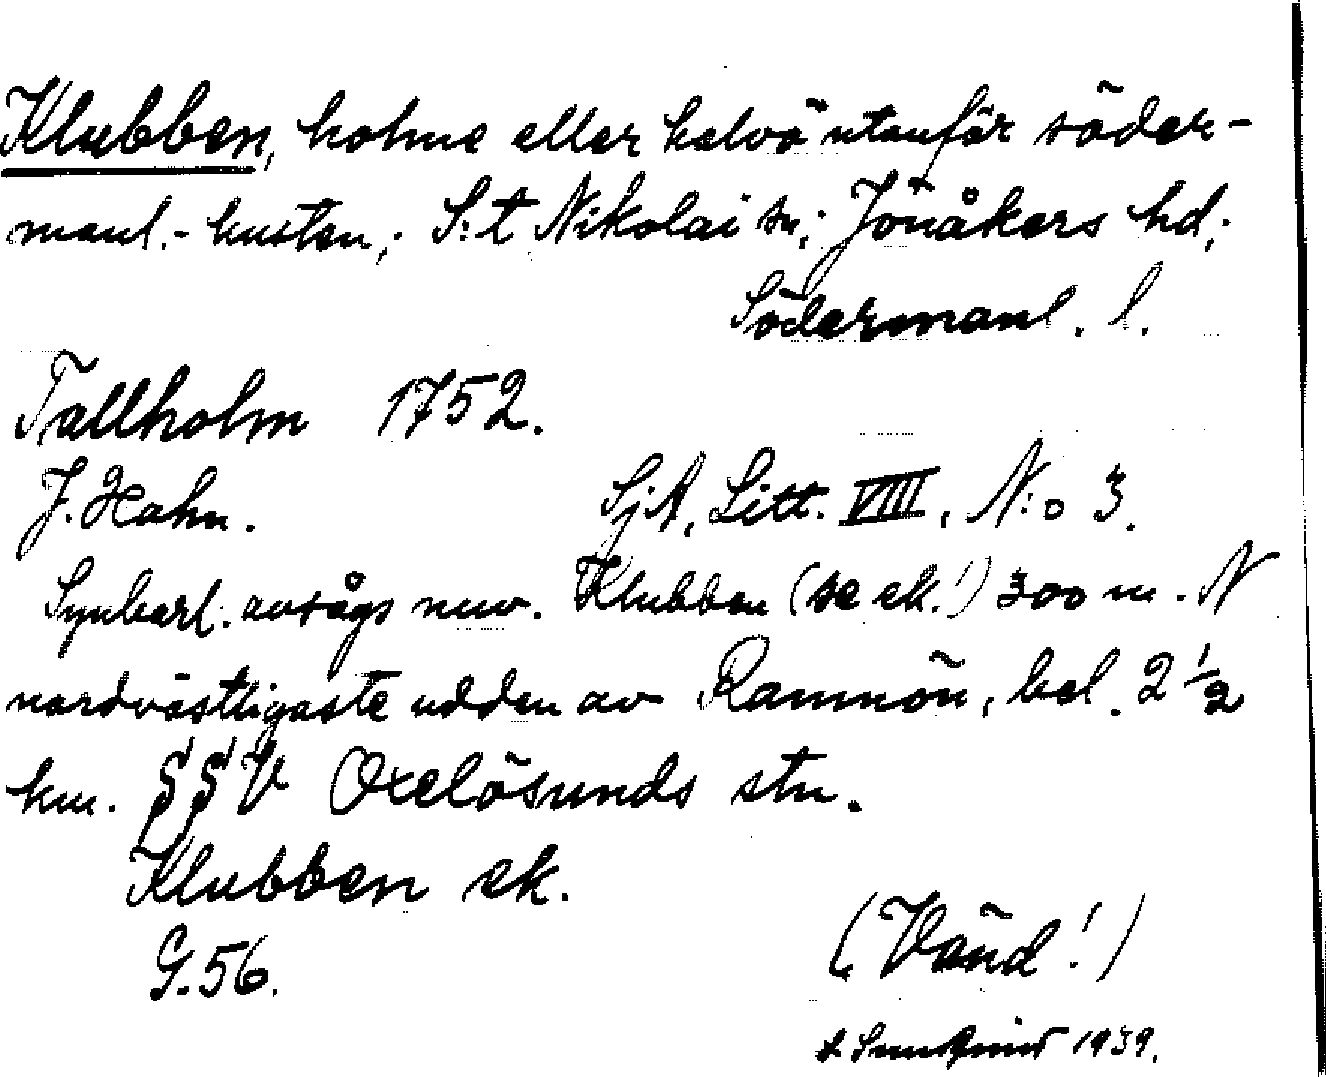 Klubben, holme eller halvö utanför söder-
manl.-kusten; S:t Nikolai sn; Jönåkers hd;
Södermanl. l.
Tallholm 1752.
J. Hahn. SjA, Litt. VIII, N:o 3.
Synbarl. avsågs nuv. Klubben (se ek.!) 300 m. N
nordvästligaste udden av Ramnön, bel. 2 1/2
km. SSV Oxelösunds stn.
Klubben ek.
G.56.
(Vänd!)
1939.